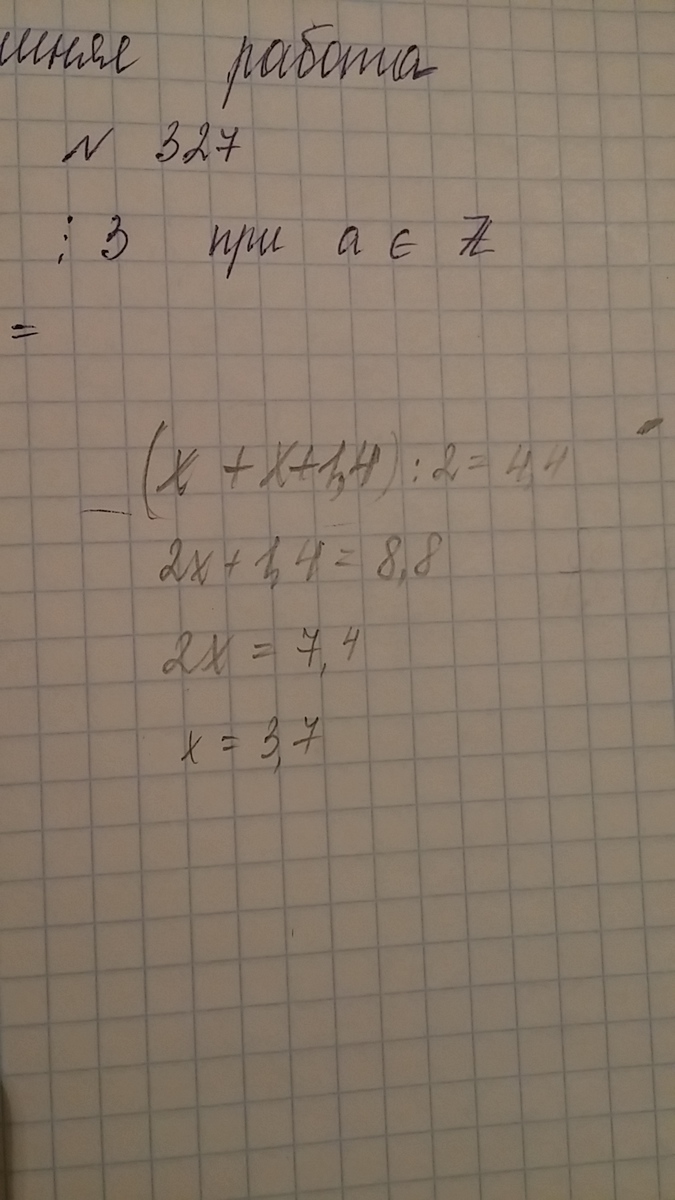 шняя работа
N 327
⋮ 3 при a ∈ ℤ
=
(x + x+1,4) : 2 = 4,4
2x + 1,4 = 8,8
2x = 7,4
x = 3,7